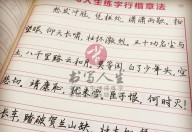 人生练字行楷章法
怒发冲冠,凭栏处、潇潇雨歇。抬
望眼,仰天长啸,壮怀激烈。三十功名尘与
土,八千里路云和月。莫等闲、白了少年头,空
悲切。靖康耻,犹未雪。臣子恨,何时灭!
长车,踏破贺兰山缺。
书写人生